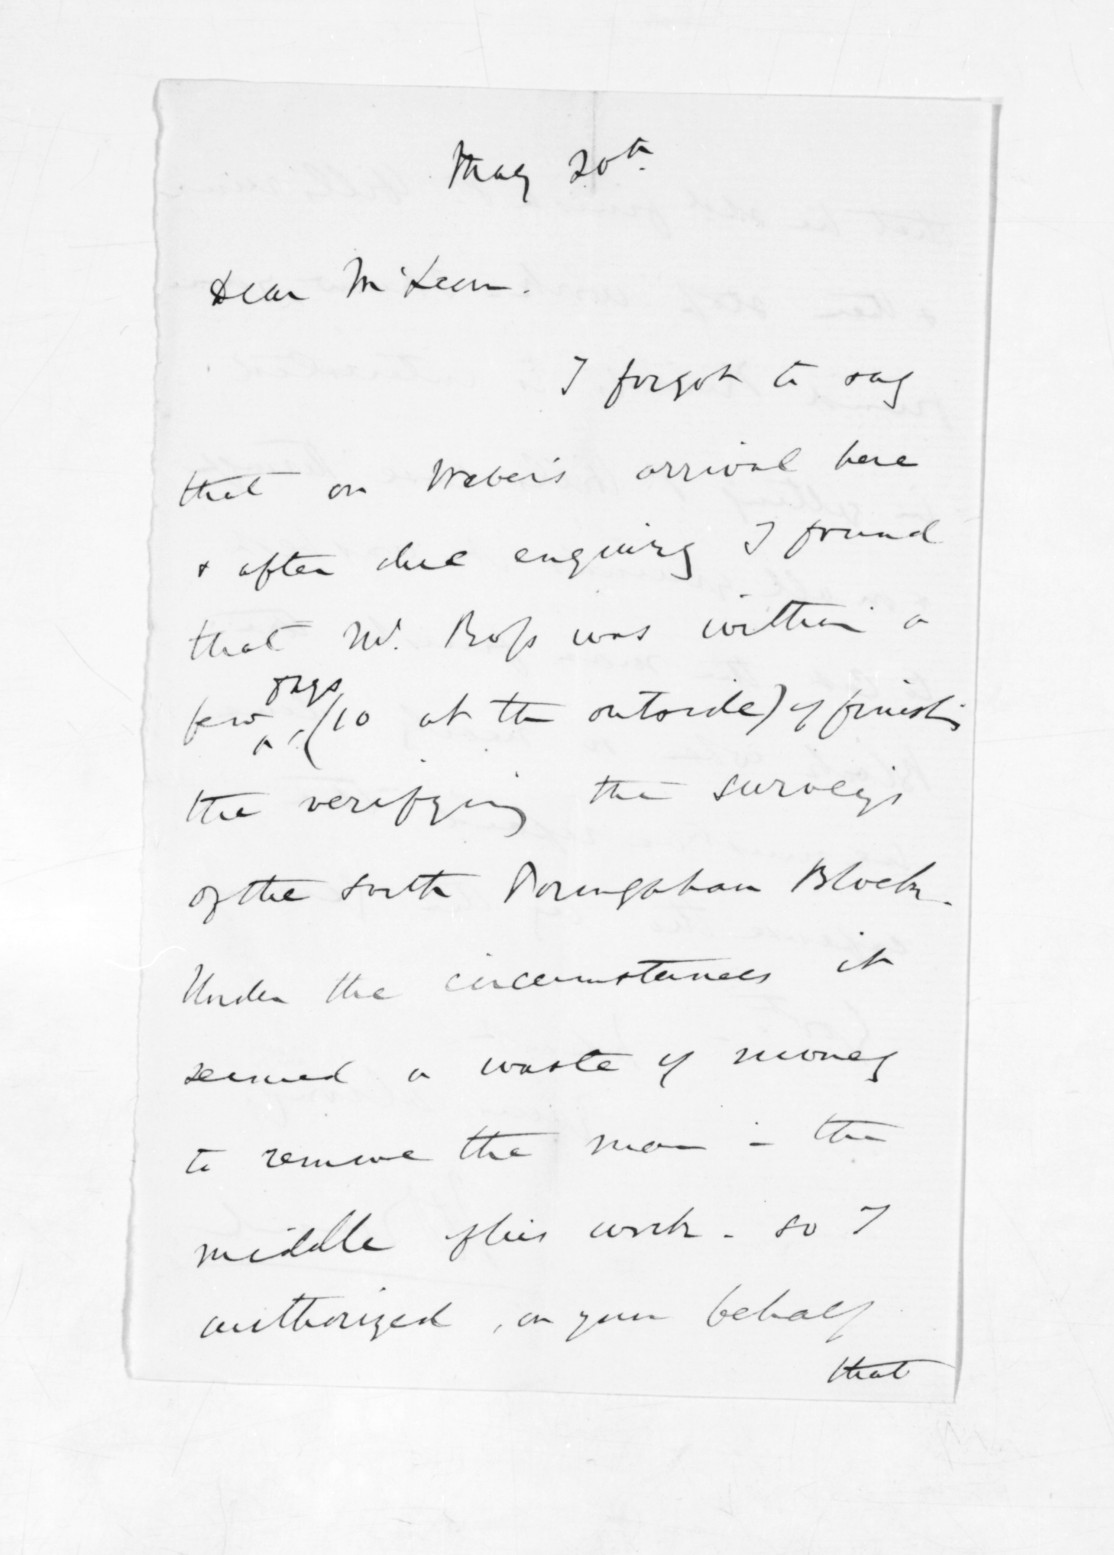 May 20th
Dear McLean.
I forgot to say
that on Weber's arrival here
& after due enquiry I found
that Mr. Ross was within a
few days (10 at the outside) of finish
the verifying the surveys
of the South Block.
Under the circumstances it
seemed a waste of money
to remove the man in the
middle of his work - so I
authorized, on your behalf
that